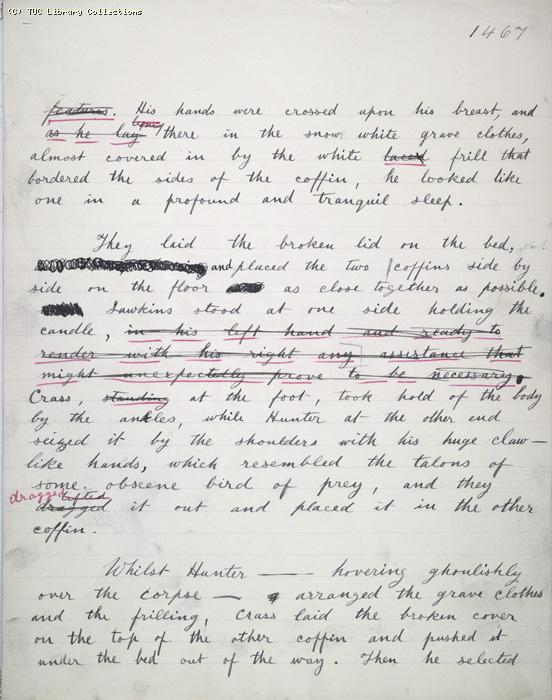 (C) TUC Library Collections
1467
features. His hands were crossed upon his breast, and
lying
as he lay there in the snow white grave clothes,
almost covered in by the white laced frill that
bordered the sides of the coffin, he looked like
one in a profound and tranquil sleep.
They laid the broken lid on the bed,
and placed the two coffins side by
side on the floor as close together as possible.
Sawkins stood at one side holding the
candle, in his left hand and ready to
render with his right any assistance that
might unexpectedly prove to be necessary.
Crass, standing at the foot, took hold of the body
by the ankles, while Hunter at the other end
seized it by the shoulders with his huge claw-
like hands, which resembled the talons of
some obscene bird of prey, and they
dragged lifted
dragged it out and placed it in the other
coffin.
Whilst Hunter — hovering ghoulishly
over the corpse — arranged the grave clothes
and the frilling, Crass laid the broken cover
on the top of the other coffin and pushed it
under the bed out of the way. Then he selected